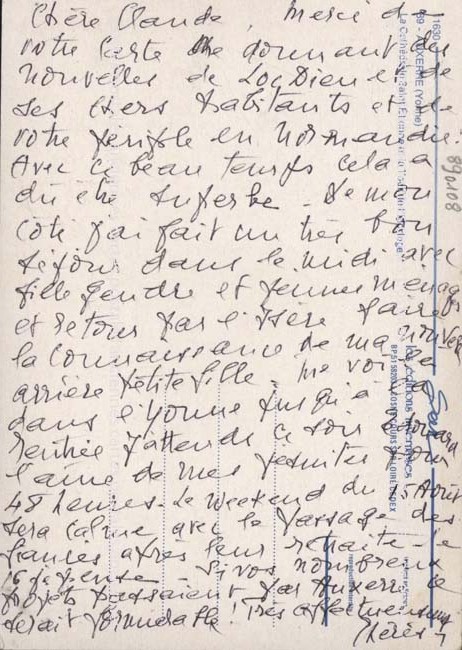 Chère Claude, Merci de
votre carte me donnant des
nouvelles de Locdieu et de
ses chers habitants et de
votre périple en Normandie.
Avec ce beau temps cela a
dû être superbe. De mon
côté j'ai fait un très bon
séjour dans le midi avec
fille gendre et jeune ménage
et retour par l'Isère faire
la connaissance de ma nouvelle
arrière petite fille. Me voici
dans l'Yonne jusqu'à la
rentrée J'attends ce soir
l'aîné de mes petits pour
48 heures. Le weekend du 15 Août
sera calme avec le passage des
fiancés après leur retraite
Si vos nombreux
projets passaient par Auxerre ce
serait formidable! Très affectueusement
Thérèse
89 - AUXERRE (Yonne)
890108